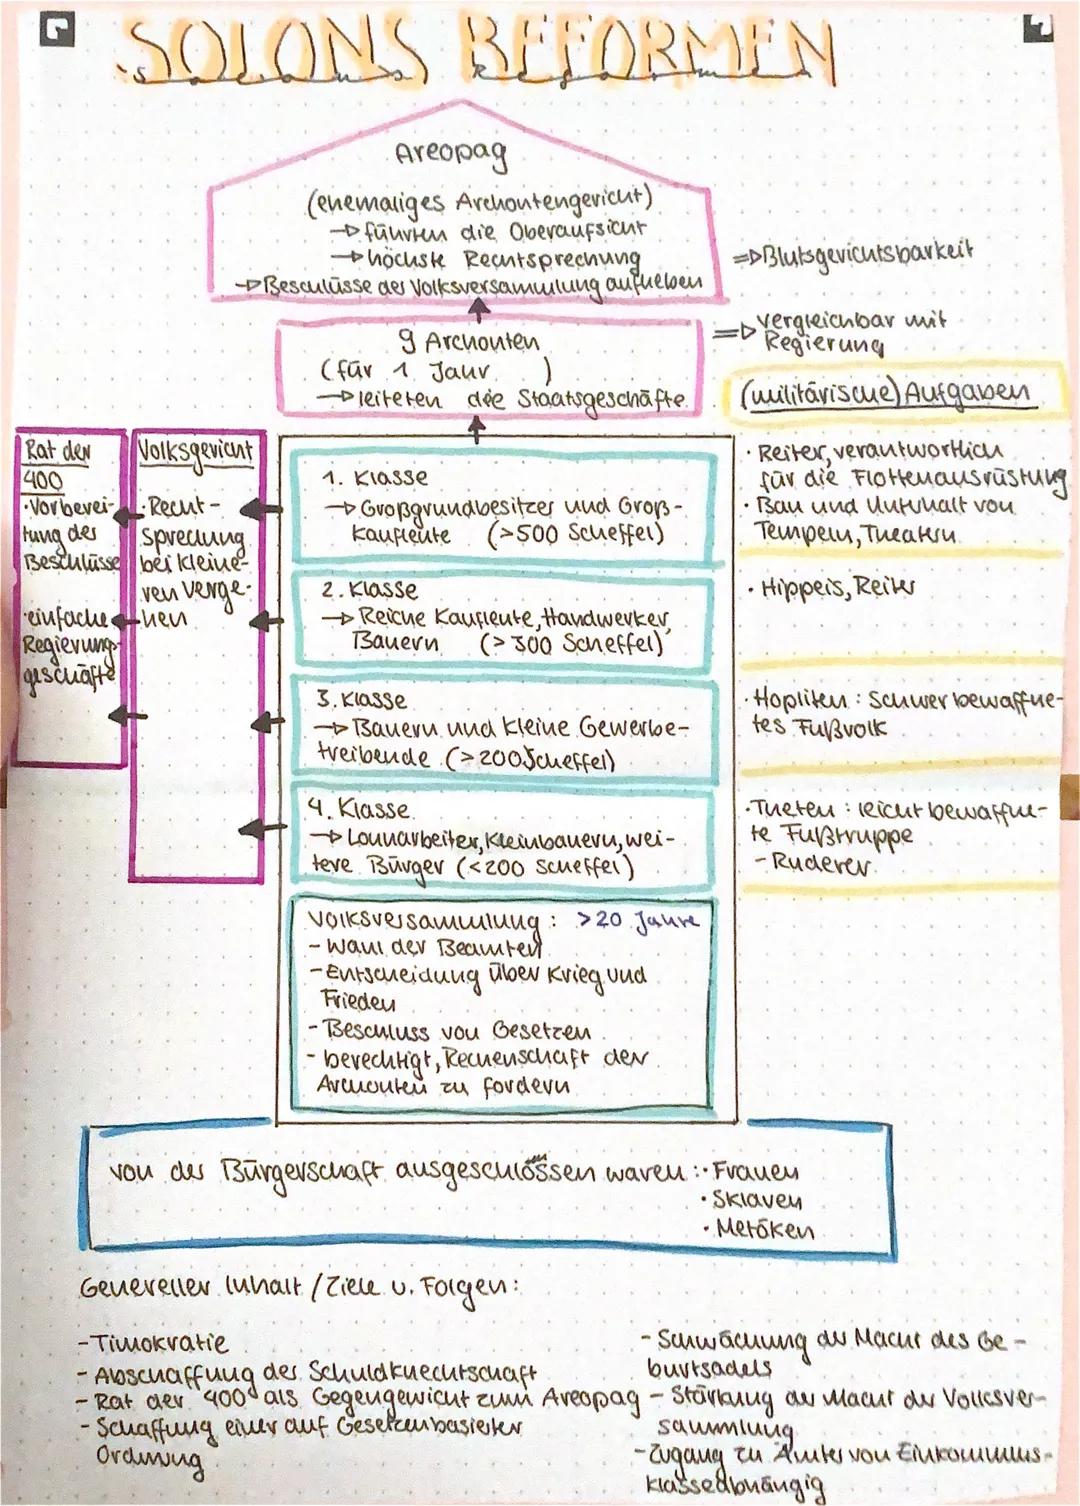 SOLONS REFORMEN
Solons Reformen
Areopag
(ehemaliges Archontengericht)
→ führten die Oberaufsicht
→ höchste Rechtsprechung
→ Beschlüsse der Volksversammlung aufheben
⇒ Blutsgerichtsbarkeit
9 Archonten
(für 1 Jahr )
→ leiteten die Staatsgeschäfte
⇒ vergleichbar mit
Regierung
(militärische) Aufgaben
Rat der
400
· Vorberei-
tung der
Beschlüsse
· einfache
Regierung-
geschäfte
Volksgericht
· Recht-
sprechung
bei kleine-
ren Verge-
hen
1. Klasse
→ Großgrundbesitzer und Groß-
kaufleute (>500 Scheffel)
2. Klasse
→ Reiche Kaufleute, Handwerker,
Bauern (>300 Scheffel)
3. Klasse
→ Bauern und kleine Gewerbe-
treibende (>200 Scheffel)
4. Klasse
→ Lohnarbeiter, Kleinbauern, wei-
tere Bürger (<200 Scheffel)
· Reiter, verantwortlich
für die Flottenausrüstung
· Bau und Unterhalt von
Tempeln, Theatern
· Hippeis, Reiter
· Hopliten : Schwerbewaffne-
tes Fußvolk
· Theten : leicht bewaffne-
te Fußtruppe
- Ruderer
Volksversammlung : >20 Jahre
- Wahl der Beamten
- Entscheidung über Krieg und
Frieden
- Beschluss von Gesetzen
- berechtigt, Rechenschaft der
Archonten zu fordern
von der Bürgerschaft ausgeschlossen waren : · Frauen
· Sklaven
· Metöken
Genereller Inhalt / Ziele u. Folgen :
- Timokratie
- Abschaffung der Schuldknechtschaft
- Rat der 400 als Gegengewicht zum Areopag
- Schaffung einer auf Gesetzen basierter
Ordnung
- Schwächung der Macht des Ge-
burtsadels
- Stärkung der Macht der Volksver-
sammlung
- Zugang zu Ämter von Einkommens-
klasse abhängig